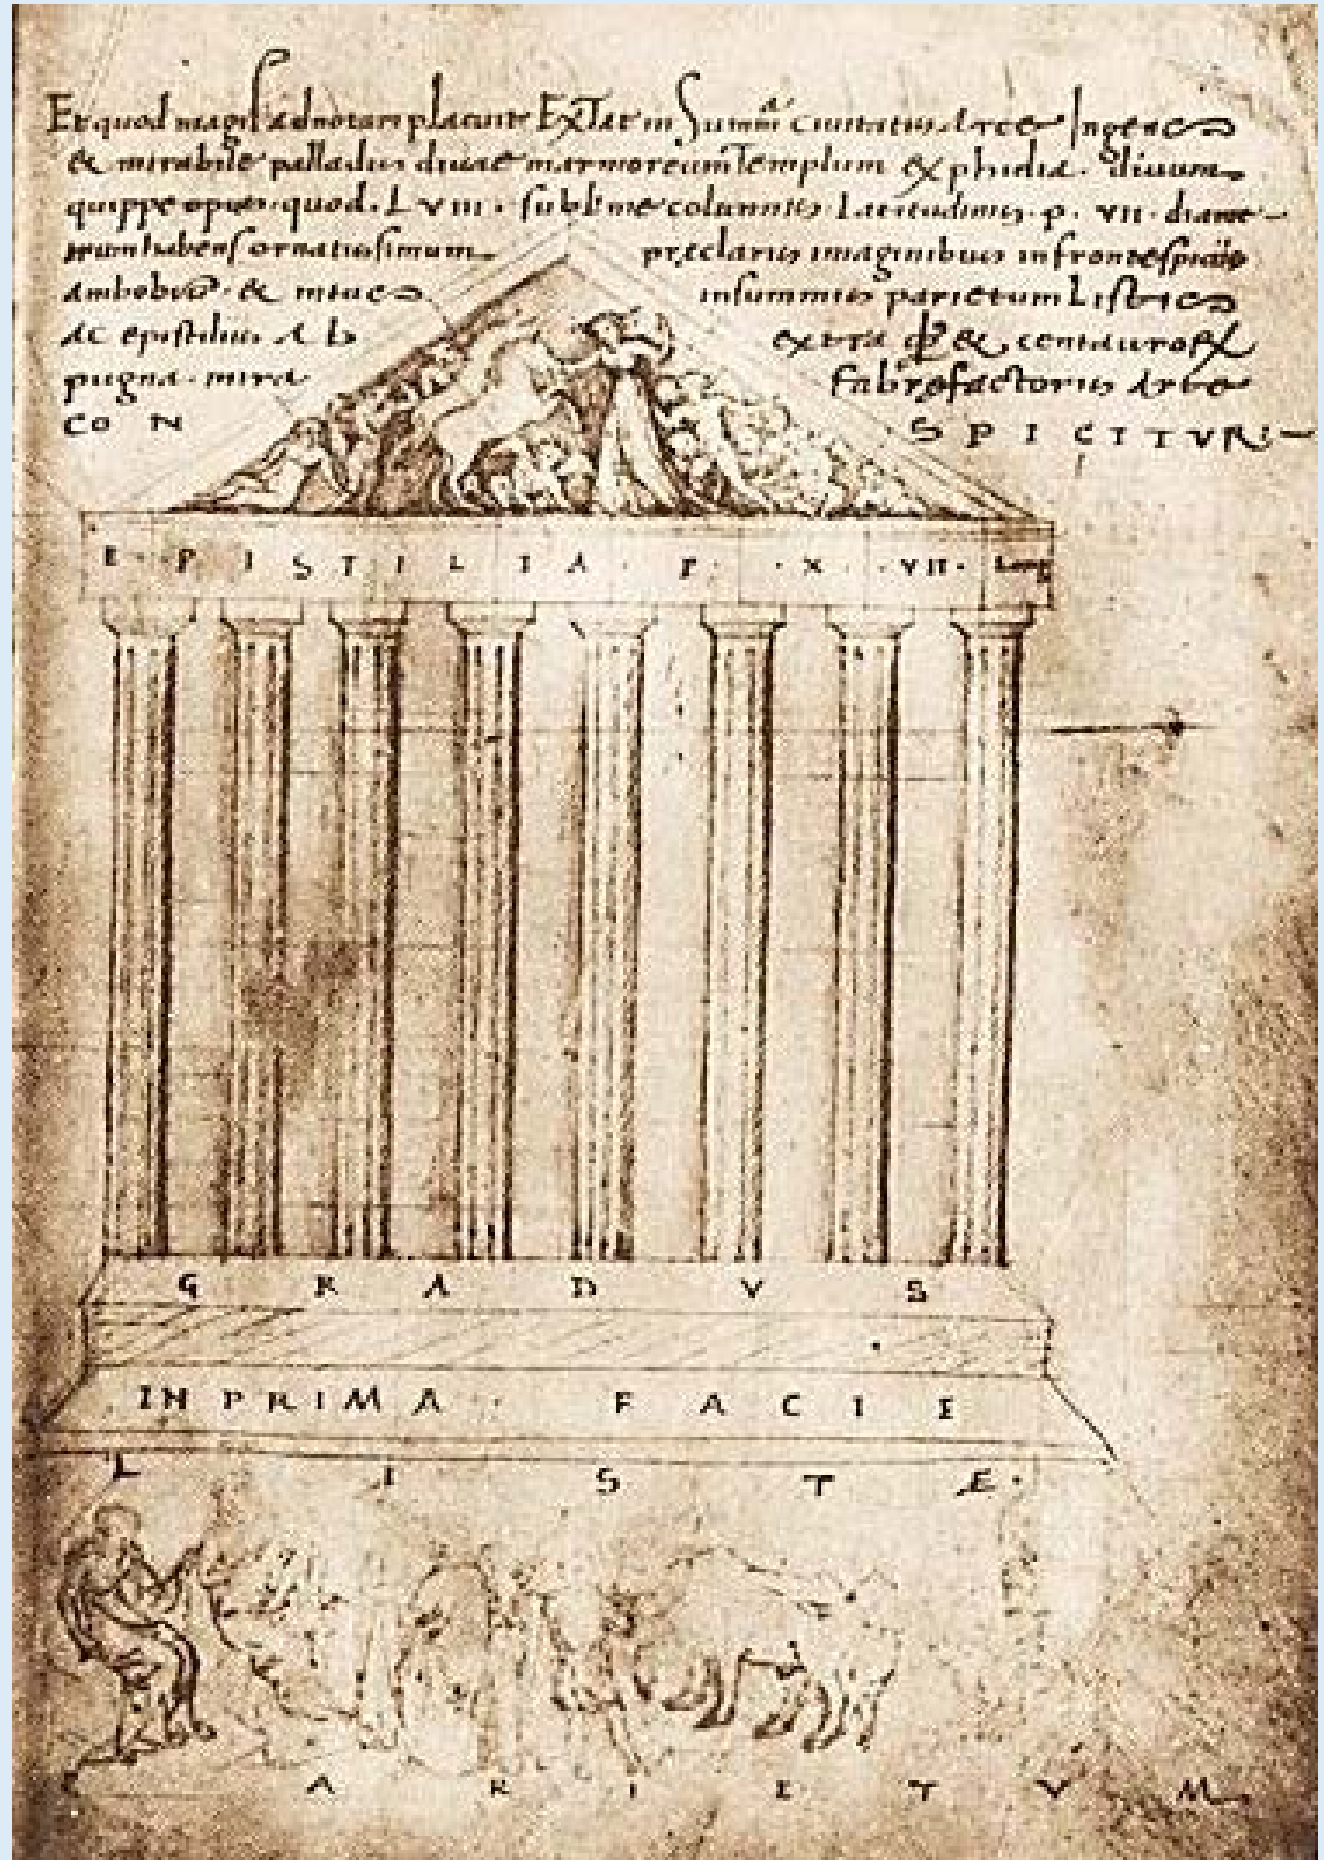 Et quod magis adnotari placuit Extat in Summa Civitatis Arce Ingens
& mirabile palladis divae marmoreum Templum ex phidia. divum
quippe opus. quod. LVIII. sublime columnis. Latitudinis. p. VII. diame-
trum habens ornatissimum praeclaris imaginibus in frontespiciis
ambobus & in summis parietum Listis
ac epistiliis Ab extra & centauror
pugna. mira fabrefactoris Arte
CO N S P I C I T V R:-
E P I S T I L I A · P · X · VII · Long
G R A D V S
IN PRIMA · F A C I E
L I S T Æ ·
P A R I E T V M